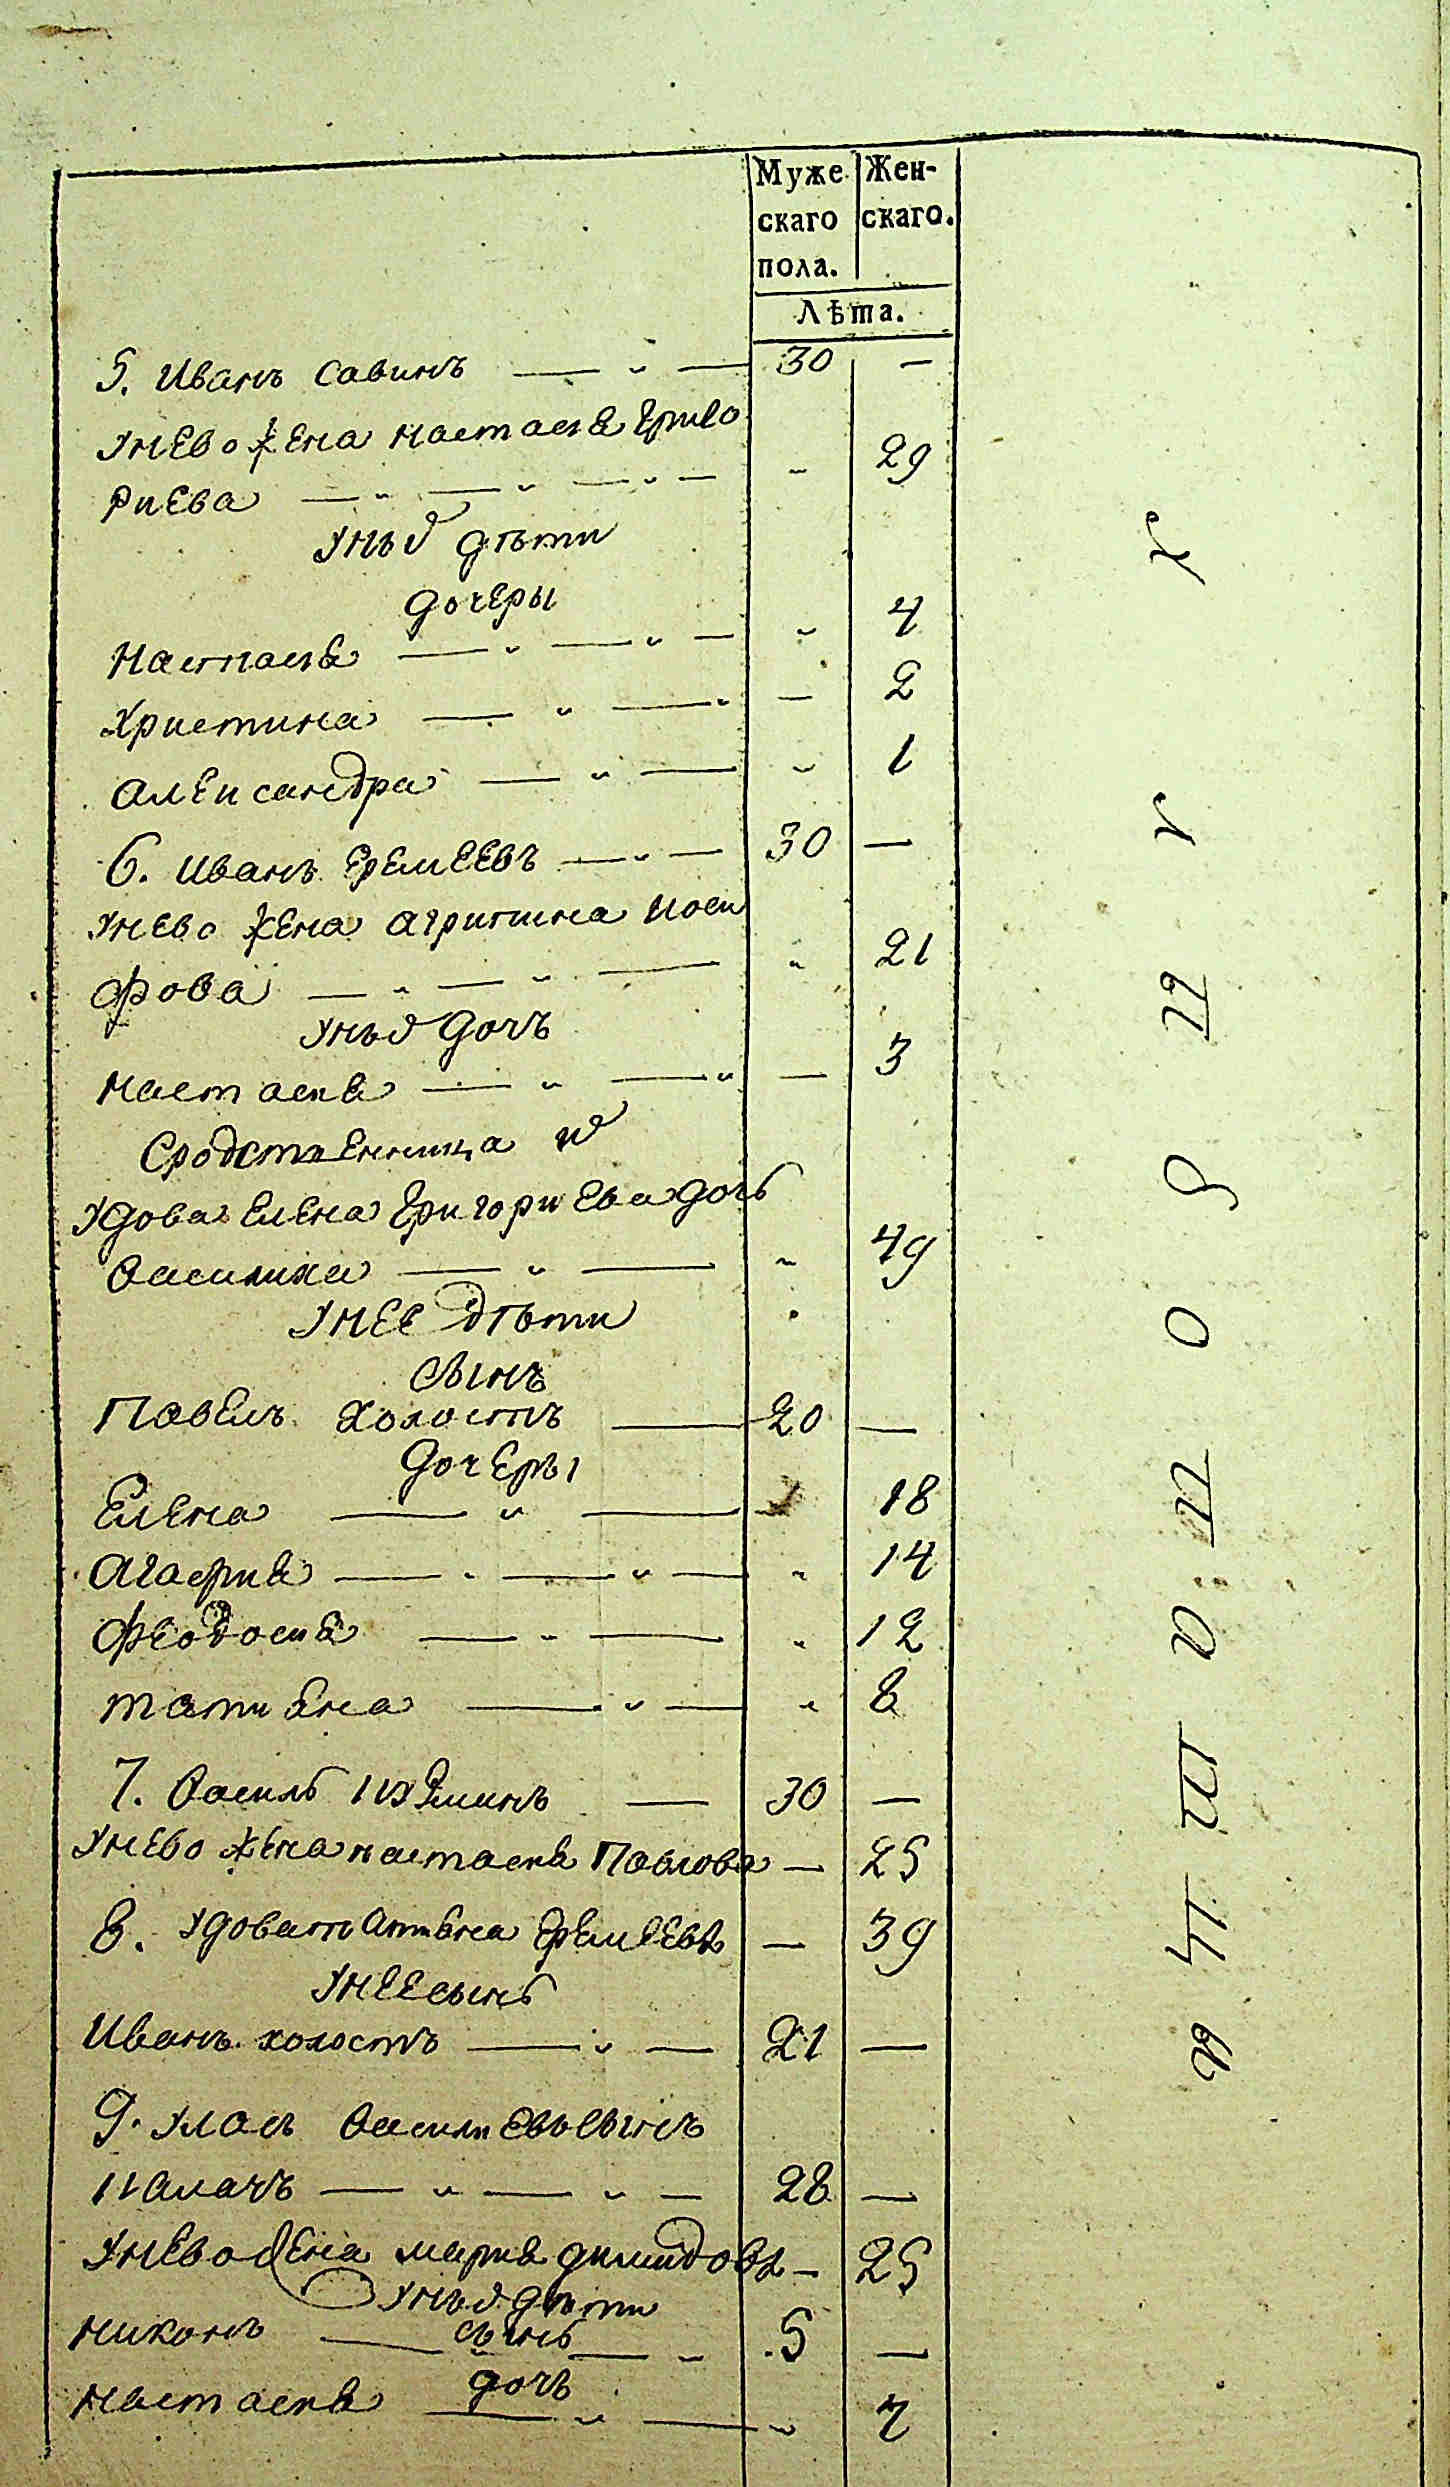 Муже Жен-
скаго скаго.
пола.
Лѣта.
5. Иванъ Савинъ 30 —
Унево жена настасѣя Григо
риева 29
Унѣхъ дѣти
дочеры
Настасѣя 4
Христина 2
Александра 1
6. Иванъ Еремеевъ 30 —
Унево жена агрипина иоси
фова 21
Унѣхъ дочь
настасия 3
Сродственница
Удова Елена Григориева дочь
Василиха 49
Унее дѣти
сынъ
Павелъ холостъ 20 —
дочеры
Елена 18
Агафия 14
Феодосия 12
татияна 8
7. Василь 30 —
Унево жена настасия Павлова — 25
8. Удова татияна Еремеева — 39
Унее сынъ
Иванъ холостъ 21 —
9. Уласъ Василиевъ сынъ
калачъ 28 —
Унево жена мария димидова — 25
Унѣхъ дѣти
сынъ
Никонъ 5 —
дочь
настасия 7